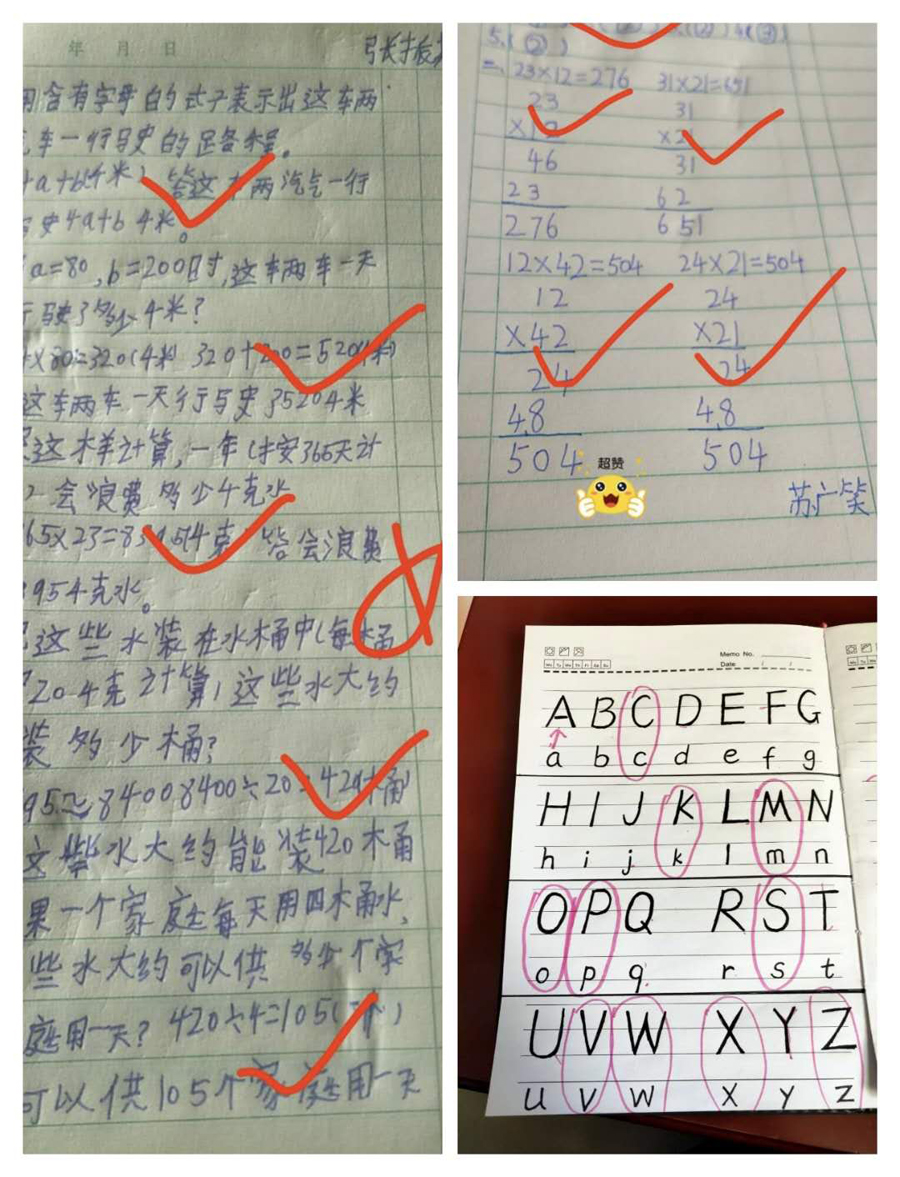 年 月 日
用含有字母的式子表示出这车两
车一行驶的路程。
4a+b(千米) 答这车两汽车一行
驶4a+b千米。
a=80,b=200时,这车两车一天
行驶了多少千米?
4×80=320(千米) 320+200=520(千米)
这车两车一天行驶了520千米
这样计算,一年(按365天计
会浪费多少千克水
365×23=8395(千克) 答会浪费
8395千克水。
这些水装在水桶中(每桶
20千克计算)这些水大约
装多少桶?
8395≈8400 8400÷20=420(桶)
这些水大约能装420桶
果一个家庭每天用四桶水,
些水大约可以供多少个家
庭用一天? 420÷4=105(个)
可以供105个家庭用一天
5.(②)
二、23×12=276 31×21=651
23 31
×12 ×21
46 31
23 62
276 651
12×42=504 24×21=504
12 24
×42 ×21
24 24
48 48
504 504
超赞
苏广笑
Memo No.
Date / /
A B C D E F G
a b c d e f g
H I J K L M N
h i j k l m n
O P Q R S T
o p q r s t
U V W X Y Z
u v w x y z